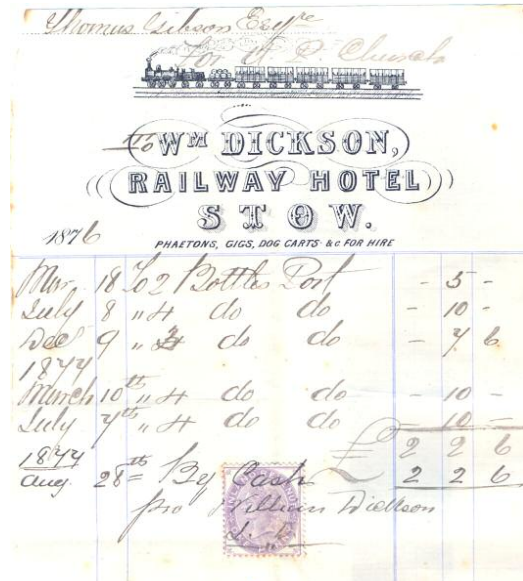 Thomas Gibson Esqre
for U P. Church
To Wm DICKSON,
RAILWAY HOTEL
STOW.
1876
PHAETONS, GIGS, DOG CARTS &c FOR HIRE
Mar 18 To 2 Bottles Port - 5 -
July 8 " 4 do do - 10 -
Dec 9 " 3 do do - 7 6
1877
March 10th " 4 do do - 10 -
July 7th " 4 do do - 10 -
£ 2 2 6
1877
Aug 28th By Cash 2 2 6
pro William Dickson